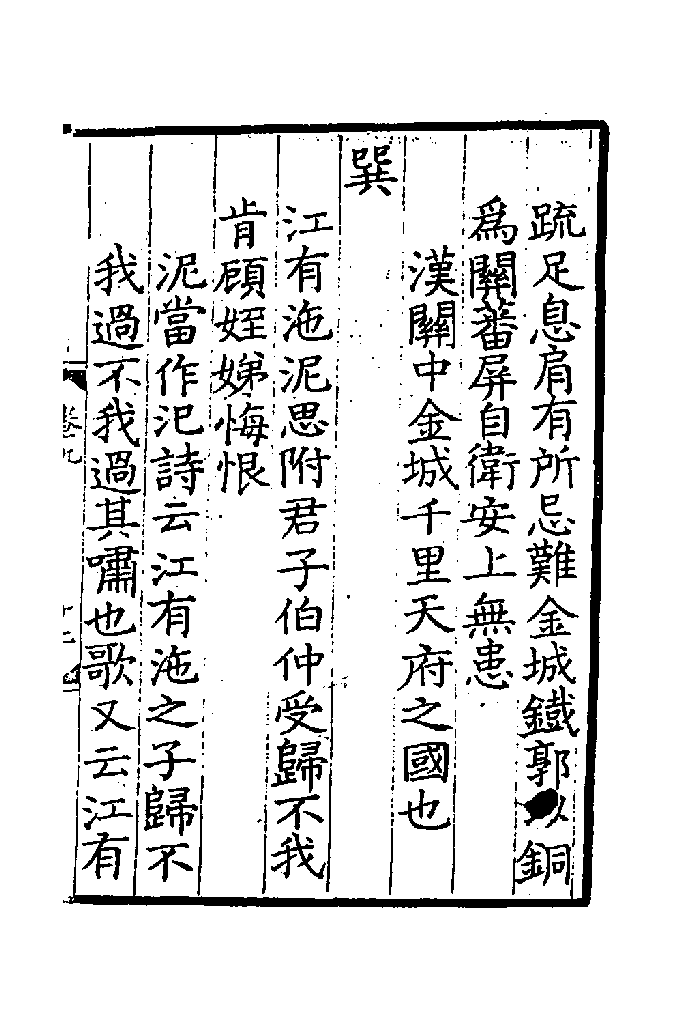 䟽足息肩有所忌難金城鐵郭以銅
為關蕃屏自衛安上無患
漢關中金城千里天府之國也
巽
江有沱泥思附君子伯仲受歸不我
肯顧姪娣悔恨
泥當作汜詩云江有沱之子歸不
我過不我過其嘯也歌又云江有
卷九